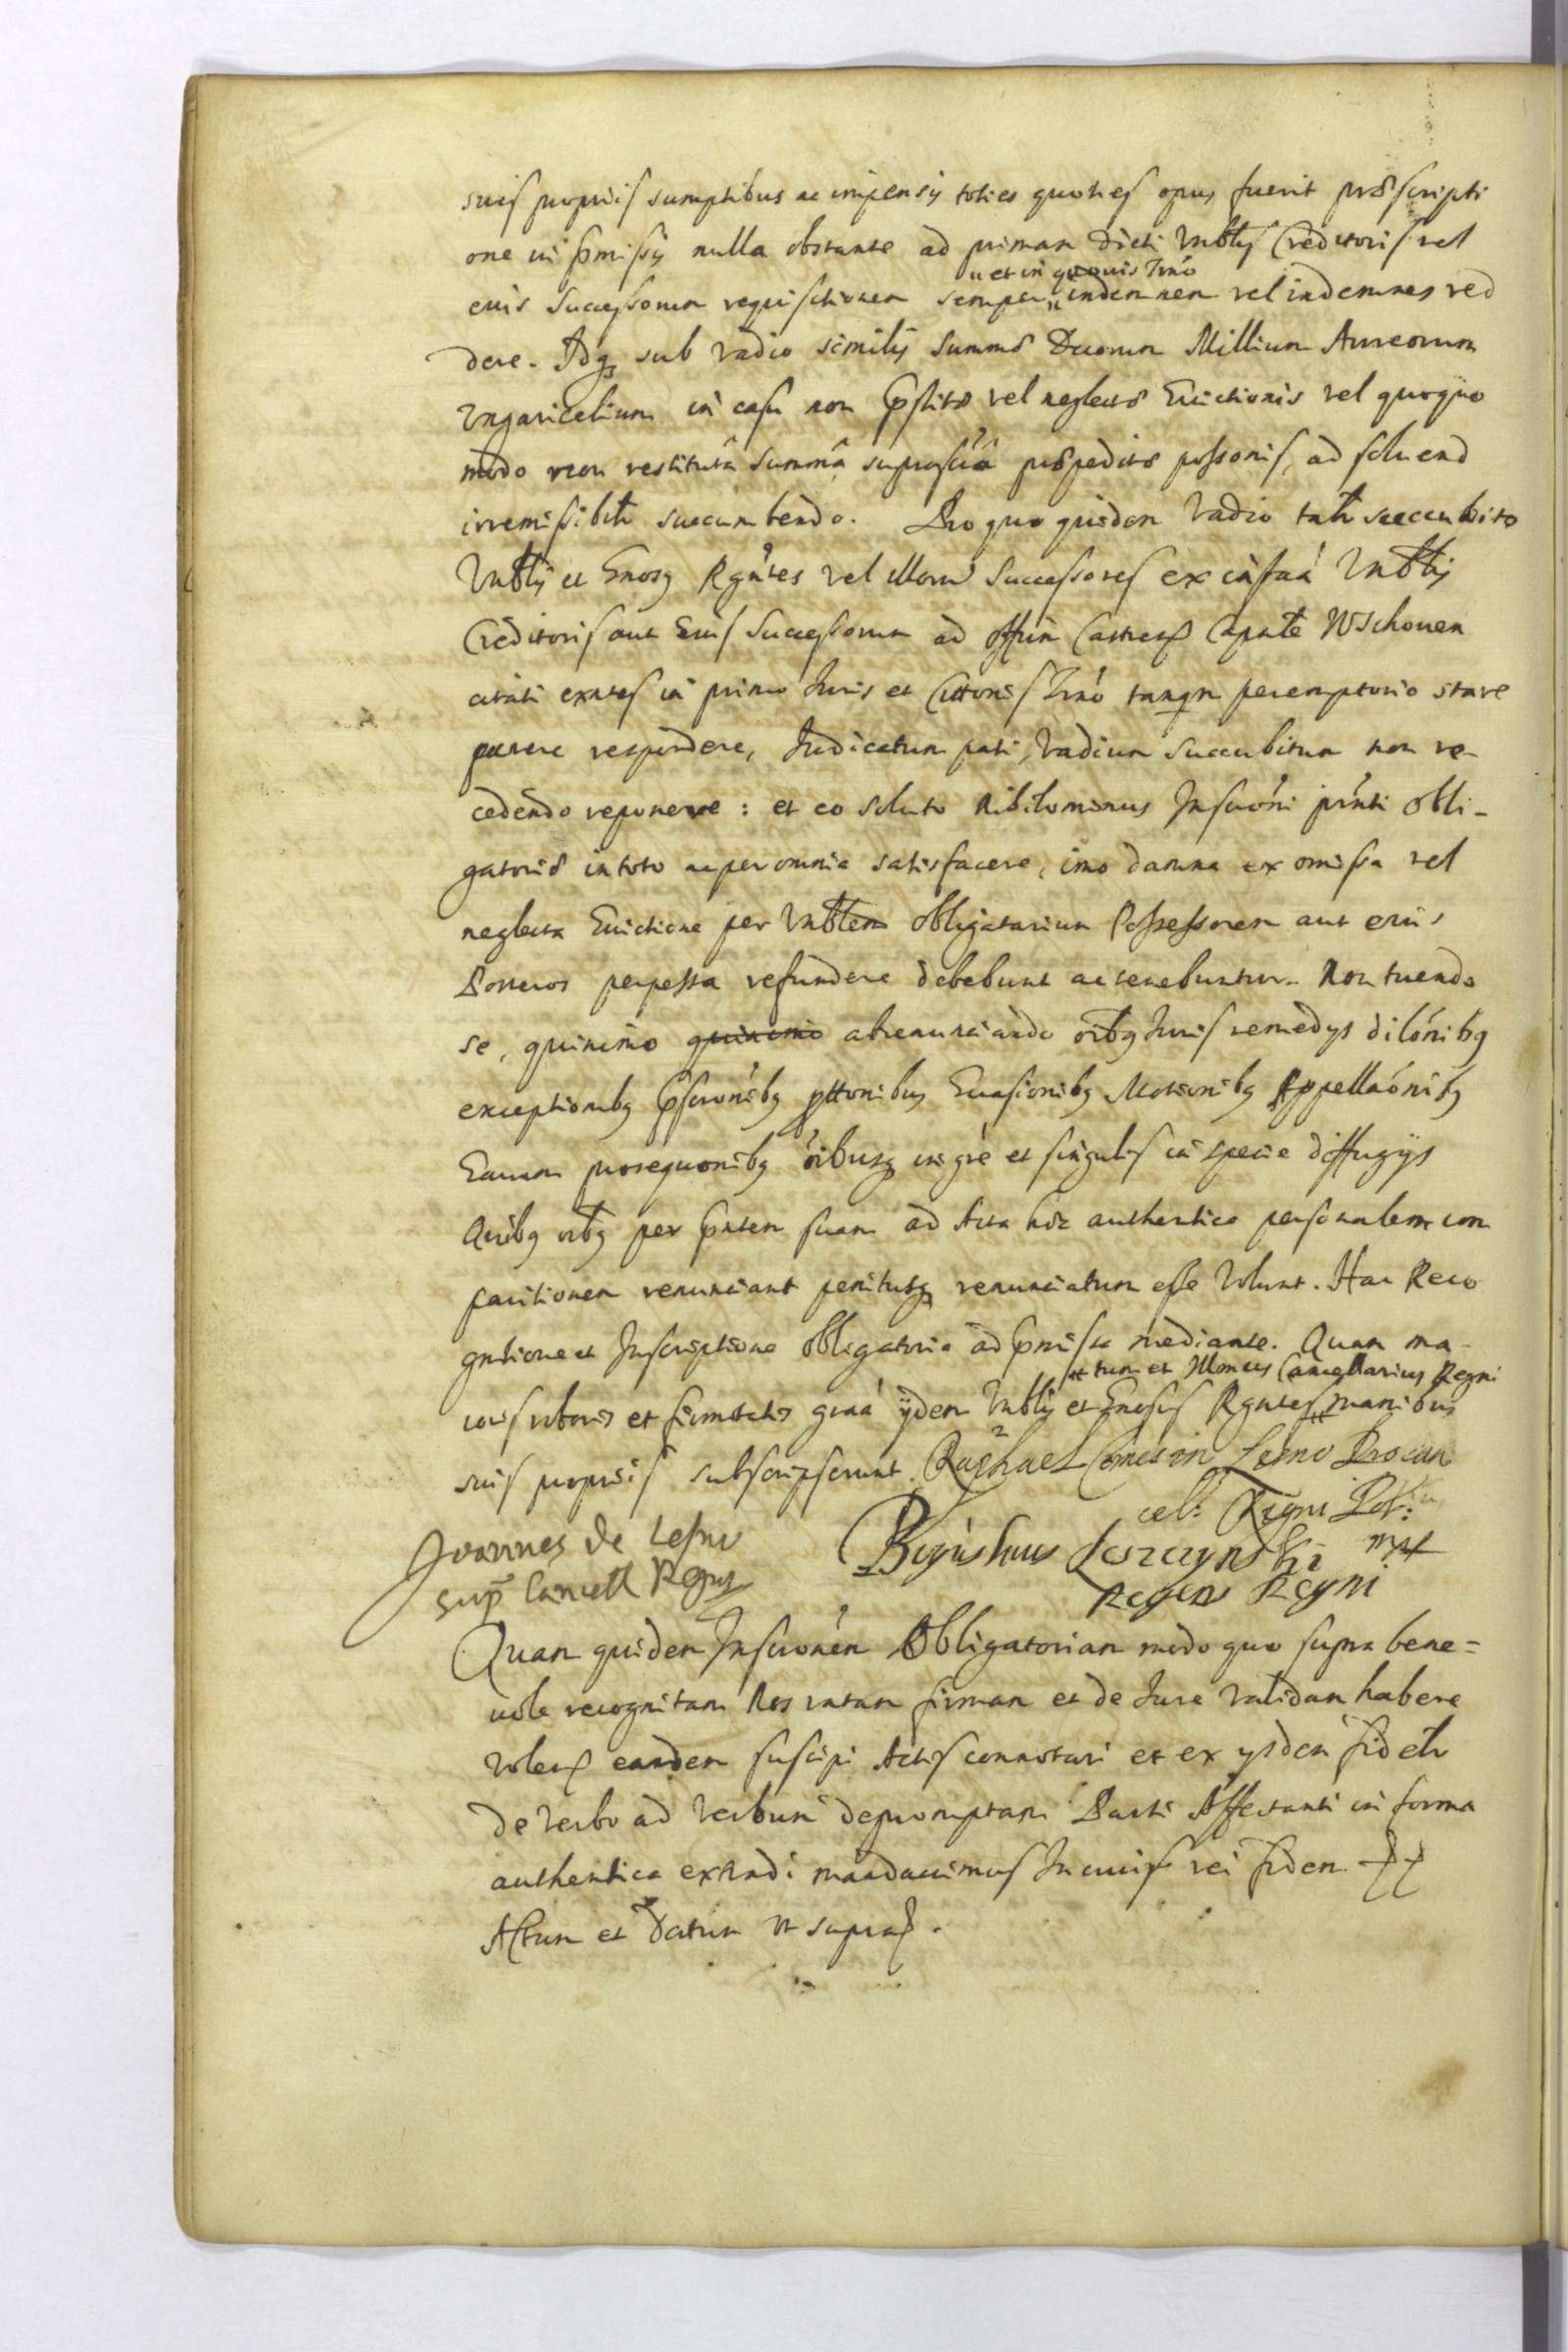 suis proprijs sumptibus ac impensis toties quoties opus fuerit præscripti
one in pmissis nulla obstante ad primam dicti Mbtis Creditoris vel
" et in quouis Trno
eius Successorum requisitionem semper " indemnem vel indemnes red
dere. Idq sub vadio similis summæ Duorum Millium Aureorum
Vngaricalium in casu non pstitæ vel neglectæ Euictionis vel quoquo
modo non restitutâ summâ suprascr̃â præpeditæ possonis, ad soluend
irremissibilr succumbendo. Pro quo quidem Vadio talr succubito
Mbtis et Gnosq Rgntes vel illorũ Successores ex instaã Mbtis
Creditoris aut Eius Successorum ad Offim Castren Capitale Wschouen
citati exntes in primo Juris et Cittonis Trno tanqm peremptorio stare
parere respondere, Iudicatum pati, Vadium succubitum non re-
cedendo reponere: et eo soluto Nihilominus Inscrõni pr̃nti Obli-
gatoriæ in toto ac per omnia satisfacere, imo damna ex omissa vel
neglecta Euictione per Mbtem Obligatarium Possessorem aut eius
Posteros perpessa refundere debebunt ac tenebuntur. Non tuendo
se, quinimo quinimo abrenunciando oĩbq Juris remedys dilõnibq
exceptionibq pscrõnibq pttonibus Euasionibq Motionibq Appellaõnibq
Earum prosequonibq õibusq in gñe et singulis in specie diffugijs
Quibq oĩbq per pñtem suam ad Acta hæc authentica personalem com
paritionem renunciant penitusq renunciatum esse Volunt. Hac Reco
gnitione et Inscriptione Obligatoria ad pmissa mediante. Quam ma-
tum et Illmus Cancellarius Regni
ioris roboris et firmitatis graã ijdem Mbtis et Gnosus Rgntes manibus
suis proprijs subscripserunt. Raphael Comes in Lesno Procan
cel: Regni Pol:
Joannes de Lesno
sup Cancell Regni
Boguslaus Leszczynski mpp
Regens Regni
Quam quidem Inscrõnem Obligatoriam modo quo supra bene=
uole recognitam Nos ratam firmam et de Jure Validam habere
Volens eandem suscipi Actis connotari et ex ysdem fidelr
de Verbo ad Verbum depromptam Parti Affectanti in forma
authentica extradi mandauimus In cuius rei fidem
Actum et Datum ut supra.